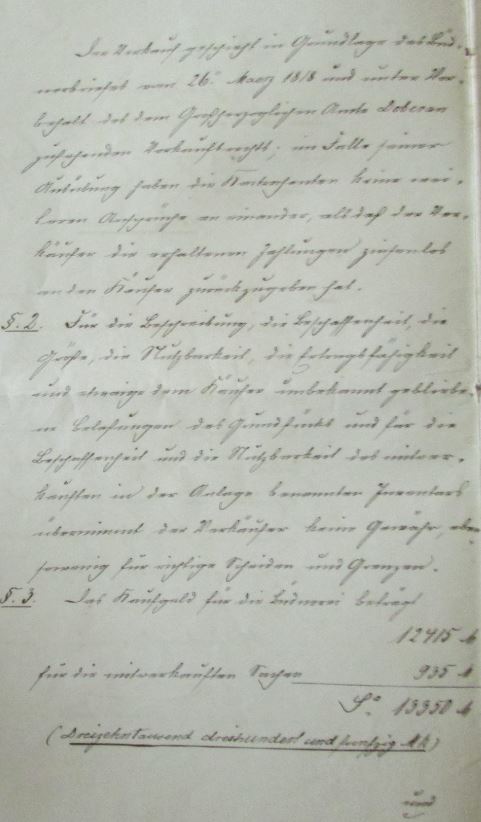 Der Verkauf geschieht in Grundlage des Büd-
nerbriefes vom 26n März 1818 und unter Vor-
behalt des dem Großherzoglichen Amte Doberan
zustehenden Vorkaufsrechts; im Falle seiner
Ausübung haben die Kontrahenten keine wei-
teren Ansprüche an einander, als daß der Ver-
käufer die erhaltenen Zahlungen zinsenlos
an den Käufer zurückzugeben hat.
§. 2. Für die Beschreibung, die Beschaffenheit, die
Größe, die Nutzbarkeit, die Ertragsfähigkeit
und etwaige dem Käufer unbekannt gebliebe-
ne Belastungen des Grundstücks und für die
Beschaffenheit und die Nutzbarkeit des mitver-
kauften in der Anlage benannten Inventars
übernimmt der Verkäufer keine Gewähr, eben
sowenig für richtige Scheiden und Grenzen.
§. 3. Das Kaufgeld für die Büdnerei beträgt
12415 M
für die mitverkauften Sachen 935 M
Sa 13350 M
(Dreizehntausend dreihundert und funfzig Mk)
und